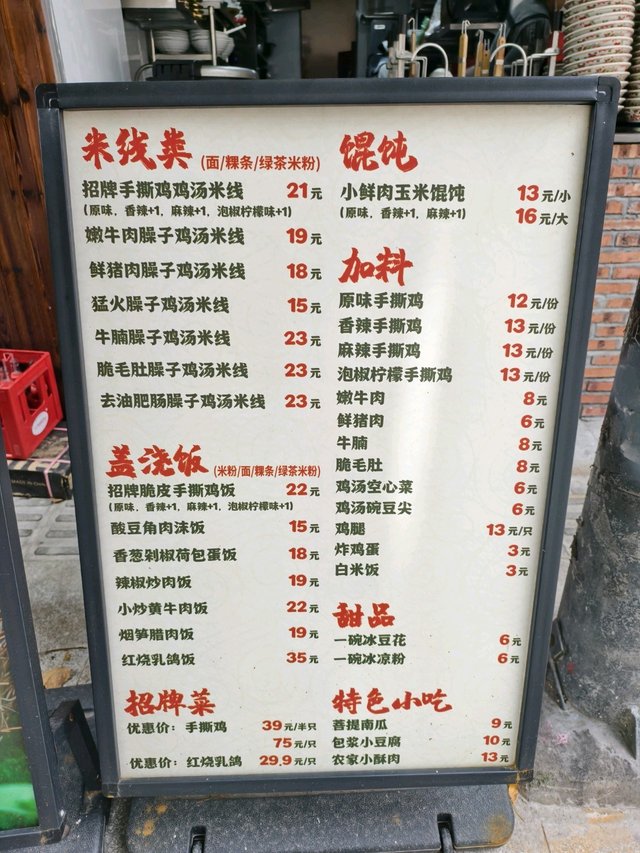 米线类 (面/粿条/绿茶米粉)
招牌手撕鸡鸡汤米线 21元
(原味，香辣+1，麻辣+1，泡椒柠檬味+1)
嫩牛肉臊子鸡汤米线 19元
鲜猪肉臊子鸡汤米线 18元
猛火臊子鸡汤米线 15元
牛腩臊子鸡汤米线 23元
脆毛肚臊子鸡汤米线 23元
去油肥肠臊子鸡汤米线 23元
盖浇饭 (米粉/面/粿条/绿茶米粉)
招牌脆皮手撕鸡饭 22元
(原味，香辣+1，麻辣+1，泡椒柠檬味+1)
酸豆角肉沫饭 15元
香葱剁椒荷包蛋饭 18元
辣椒炒肉饭 19元
小炒黄牛肉饭 22元
烟笋腊肉饭 19元
红烧乳鸽饭 35元
招牌菜
优惠价：手撕鸡 39元/半只
75元/只
优惠价：红烧乳鸽 29.9元/只
馄饨
小鲜肉玉米馄饨 13元/小
(原味，香辣+1，麻辣+1) 16元/大
加料
原味手撕鸡 12元/份
香辣手撕鸡 13元/份
麻辣手撕鸡 13元/份
泡椒柠檬手撕鸡 13元/份
嫩牛肉 8元
鲜猪肉 6元
牛腩 8元
脆毛肚 8元
鸡汤空心菜 6元
鸡汤碗豆尖 6元
鸡腿 13元/只
炸鸡蛋 3元
白米饭 3元
甜品
一碗冰豆花 6元
一碗冰凉粉 6元
特色小吃
菩提南瓜 9元
包浆小豆腐 10元
农家小酥肉 13元